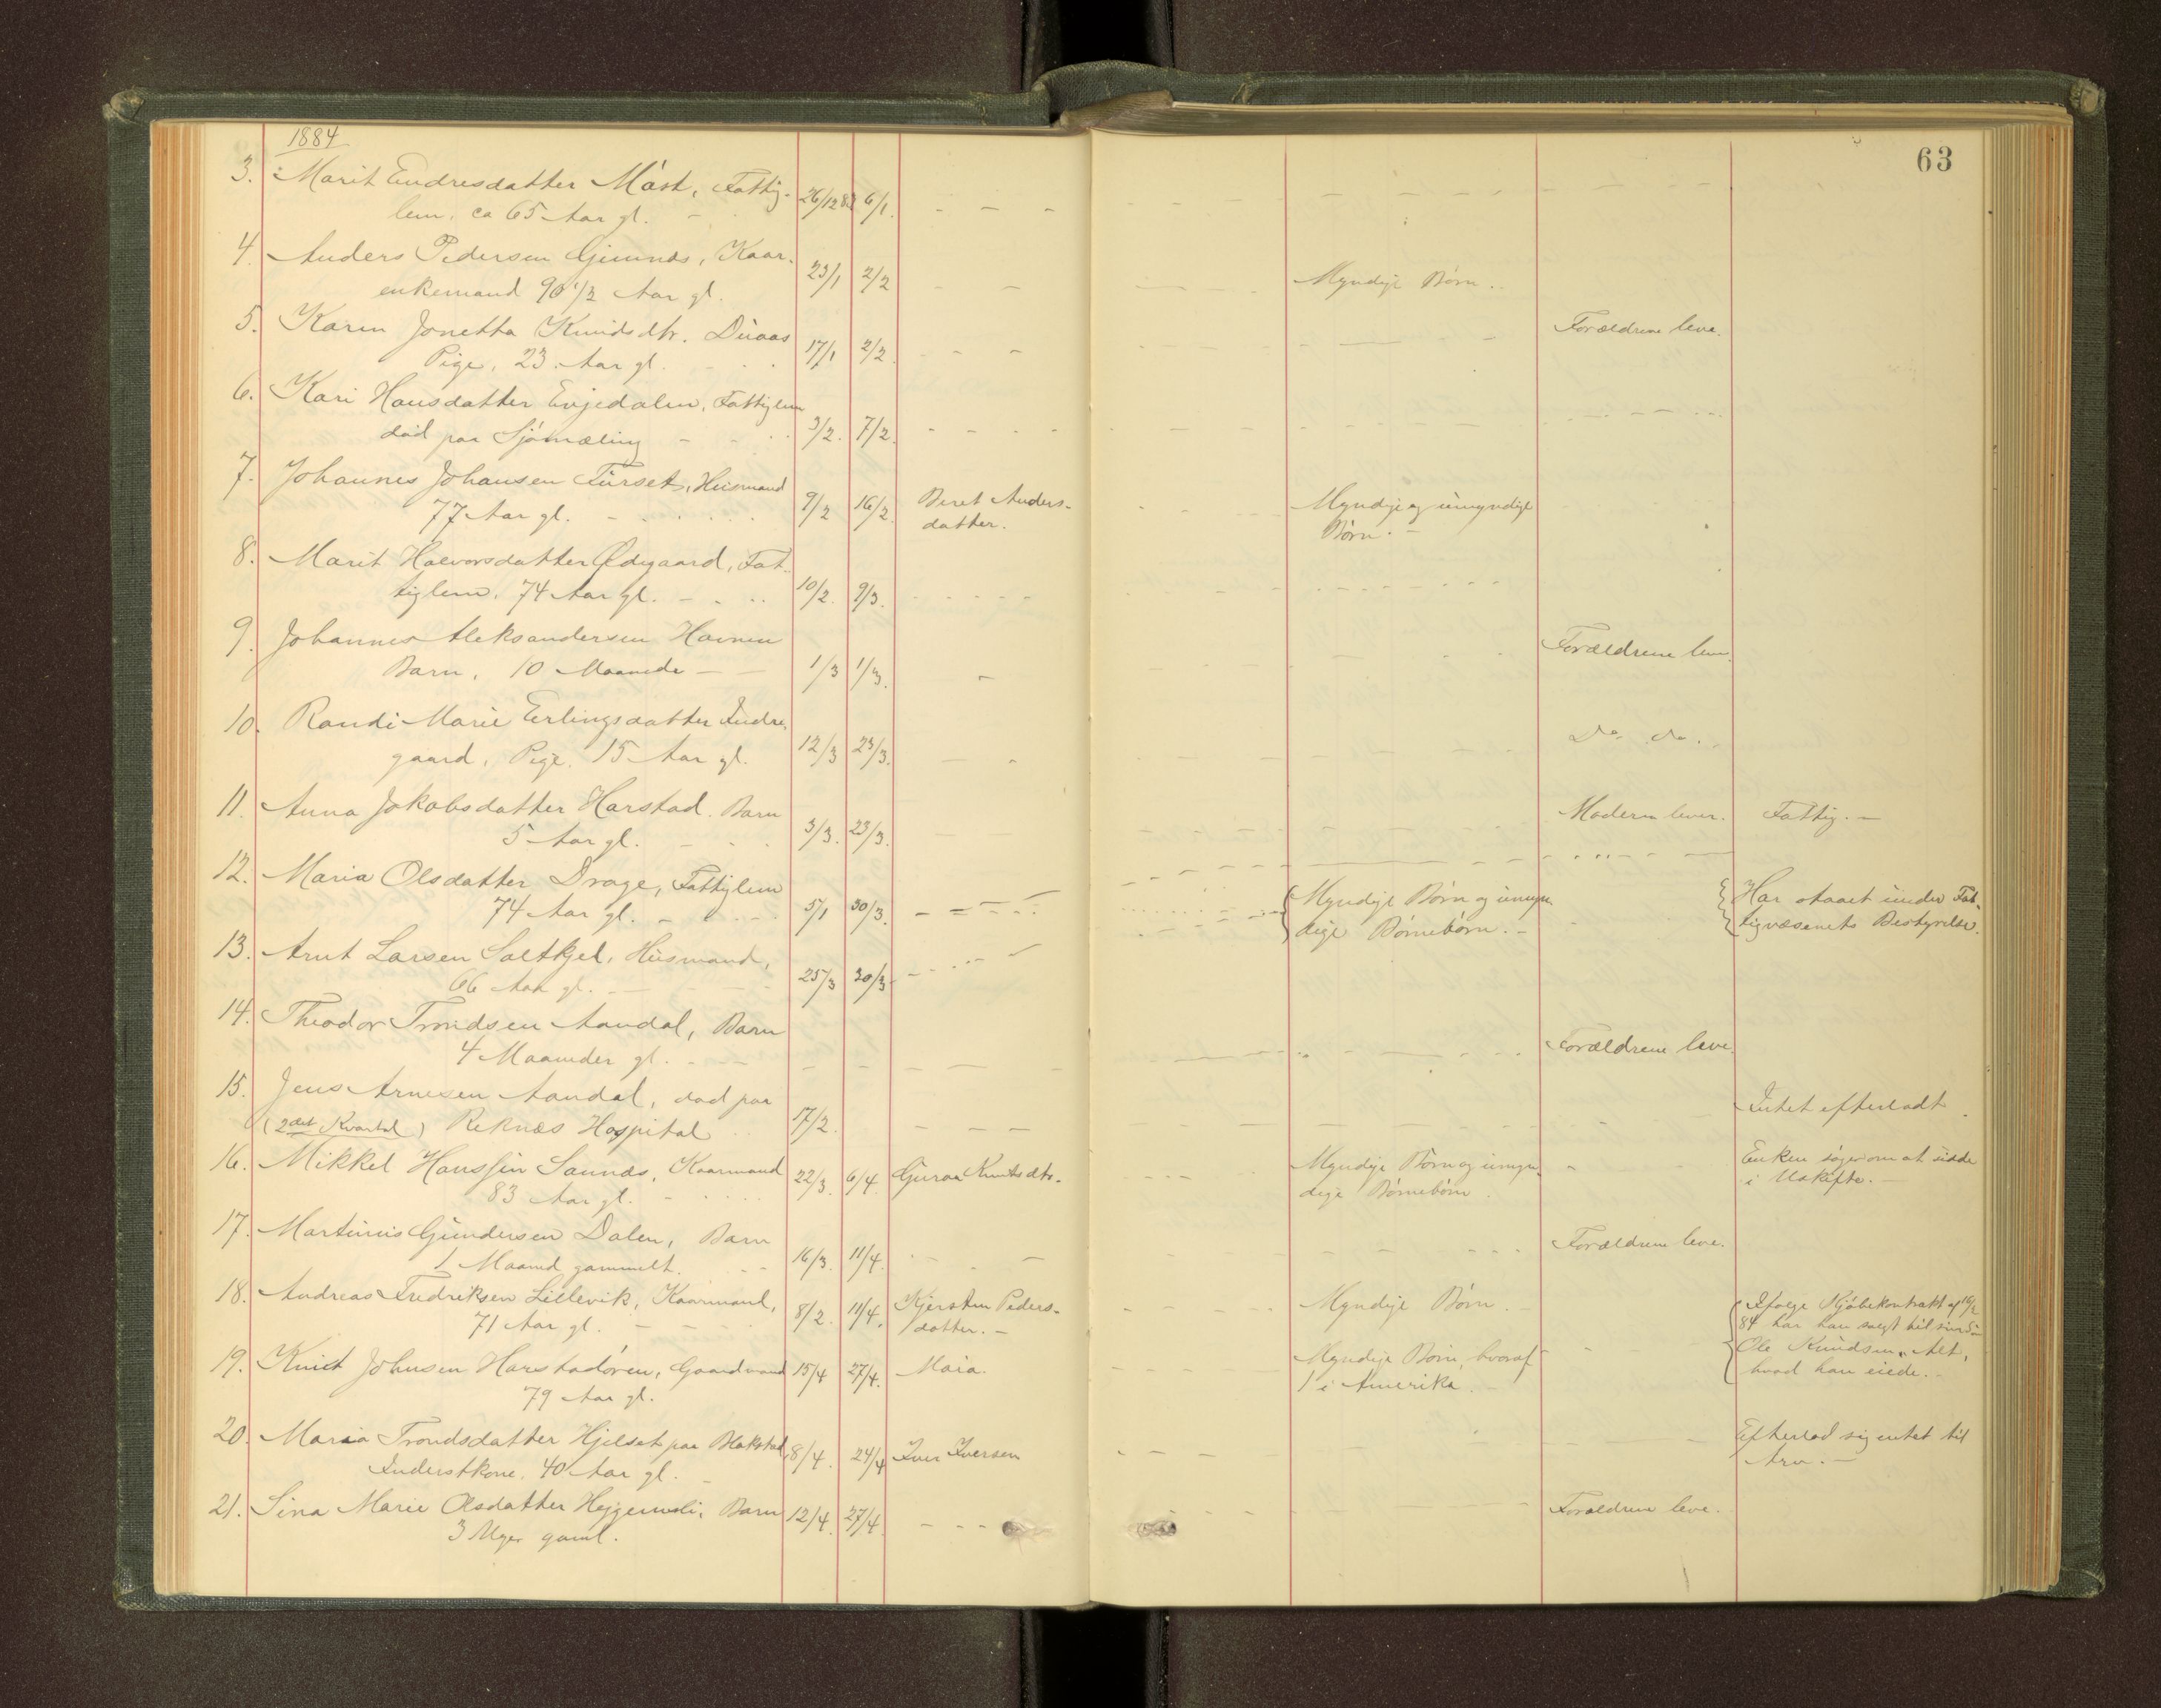 1884
63
3. Marit Endresdatter Måst, Fattig- 26/12 83 6/1.
lem, ca 65 Aar gl.
4. Anders Pedersen Gimnæs, Kaar- 23/1 2/2 Myndige Børn.
enkemand 90 1/2 Aar gl.
5. Karen Jonetta Knudsdtr. Duaas 17/1 2/2. Forældrene leve.
Pige, 23 Aar gl.
6. Kari Hansdatter Engedalen, Fattiglem
død paa Sjømæling 3/2. 7/2.
7. Johannes Johansen Furset, Husmand 9/2 16/2. Beret Anders- Myndige og umyndige
77 Aar gl. datter. Børn.
8. Marit Halvorsdatter Ødegaard, Fat-
tiglem, 74 Aar gl. 10/2. 9/3.
9. Johannes Aleksandersen Havnen Forældrene leve.
Barn, 10 Maaneder 1/3 1/3.
10. Randi Marie Erlingsdatter Indre- Do. do.
gaard, Pige. 15 Aar gl. 12/3 23/3.
11. Anna Jakobsdatter Harstad. Barn 3/3. 23/3. Moderen lever. Fattig.
5 Aar gl.
12. Maria Olsdatter Drage, Fattiglem 5/1 30/3. Myndige Børn og umyn- Har staaet under Fat-
74 Aar gl. dige Børnebørn. tigvæsenets Bestyrelse.
13. Arnt Larsen Saltkjel, Husmand, 25/3 30/3
66 Aar gl.
14. Theodor Trondsen Aandal, Barn Forældrene leve.
4 Maaneder gl.
15. Jens Arnesen Aandal, død paa 17/2. Intet efterladt.
(2det Kvartal) Reknæs Hospital
16. Mikkel Hanssen Sannæs, Kaarmand 22/3. 6/4. Guraa Knutsdtr. Myndige Børn og umyn- Enken søger om at sidde
83 Aar gl. dige Børnebørn. i Uskifte.
17. Martinus Gundersen Dalen, Barn 16/3. 11/4. Forældrene leve.
1 Maaned gammelt.
18. Andreas Fredriksen Lillevik, Kaarmand, 8/2. 11/4. Kjersten Peders- Myndige Børn. Ifølge Kjøbekontrakt af
71 Aar gl. datter. 84 har han solgt til sin Søn
19. Knut Johnsen Harstadøren, Gaardmand 15/4 27/4. Maria. Myndige Børn, hvoraf Ole Knudsen "Alt,
79 Aar gl. 1 i Amerika. hvad han eiede.
20. Maria Trondsdatter Hjelset paa Blakstad, 8/4. 24/4 Iver Iversen Efterlod sig intet til
Inderstkone. 40 Aar gl. Arv.
21. Sina Marie Olsdatter Heggemsli, Barn 12/4. 27/4. Forældrene leve.
3 Uger gaml.